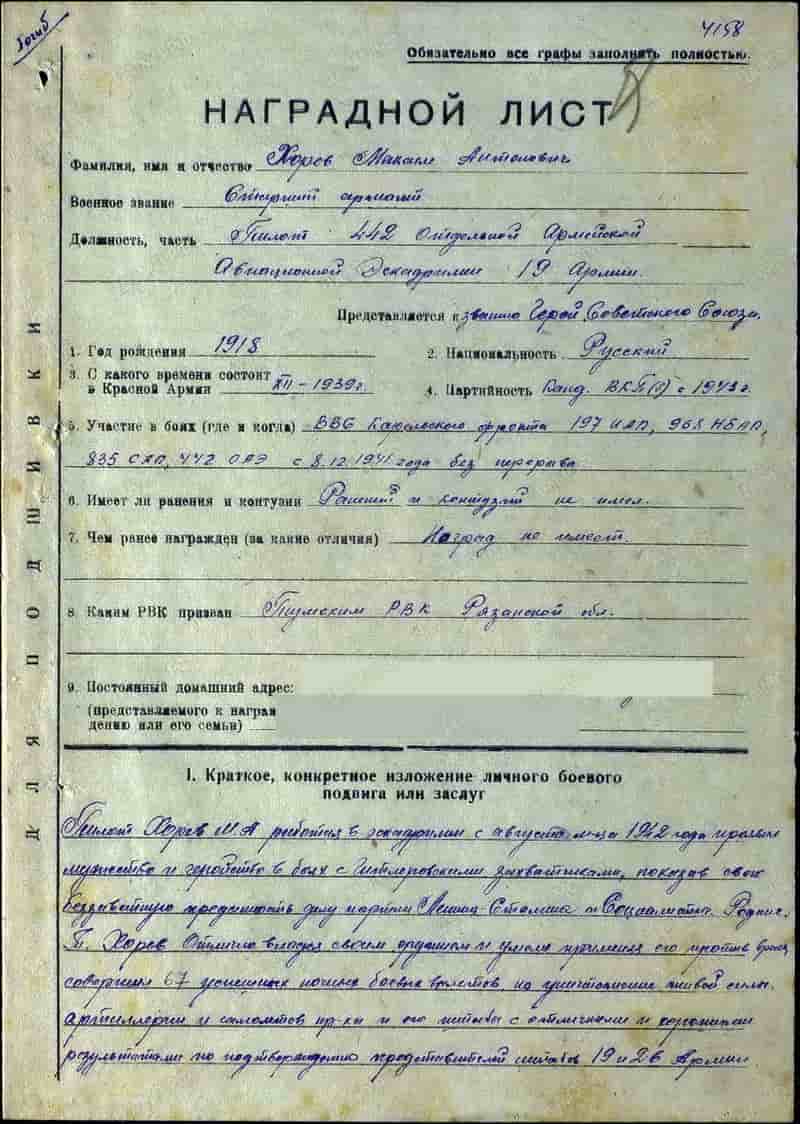 Погиб
4158
Обязательно все графы заполнять полностью.
НАГРАДНОЙ ЛИСТ
Фамилия, имя и отчество Хорев Максим Антонович
Военное звание Старший сержант
Должность, часть Пилот 442 Отдельной Армейской
Авиационной Эскадрильи 19 Армии.
Представляется к званию Герой Советского Союза.
1. Год рождения 1918
2. Национальность Русский
3. С какого времени состоит
в Красной Армии XII-1939 г.
4. Партийность Канд. ВКП(б) с 1943 г.
5. Участие в боях (где и когда) ВВС Карельского фронта 197 ИАП, 968 НБАП,
835 САП, 442 ОАЭ с 8.12.1941 года без перерыва
6. Имеет ли ранения и контузии Ранений и контузий не имел.
7. Чем ранее награжден (за какие отличия) Наград не имеет.
8. Каким РВК призван Тумским РВК Рязанской обл.
9. Постоянный домашний адрес:
(представляемого к награж
дению или его семьи)
ДЛЯ ПОДШИВКИ
I. Краткое, конкретное изложение личного боевого
подвига или заслуг
Пилот Хорев М.А работая в эскадрилии с августа м-ца 1942 года проявил
мужество и геройство в боях с Гитлеровскими захватчиками, показав свою
беззаветную преданность делу партии Ленина-Сталина и Социалистич. Родине.
Т. Хорев Отлично владея своим оружием и умело применяя его против врага,
совершил 67 успешных ночных боевых вылетов на уничтожение живой силы,
артиллерии и минометов пр-ка и его штабов с отличными и хорошими
результатами по подтверждению представителей штабов 19 и 26 Армии